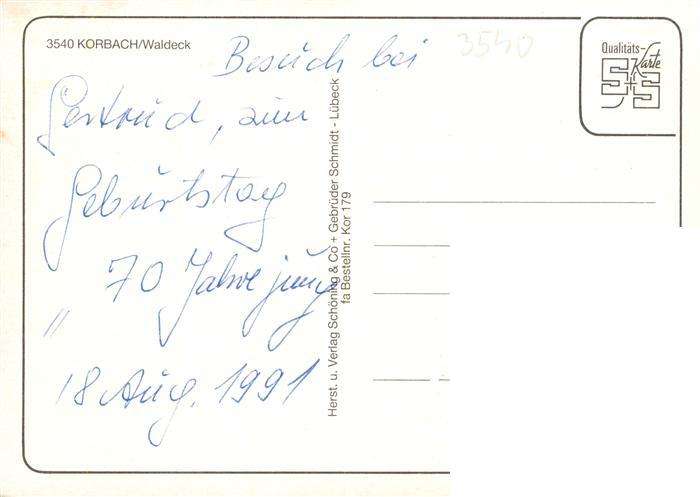 3540 KORBACH/Waldeck
3540
Qualitäts-
Karte
S+S
Besuch bei
Gertrud, zum
Geburtstag
70 Jahre jung
"
18 Aug. 1991
Herst. u. Verlag Schöning & Co + Gebrüder Schmidt - Lübeck
fa Bestellnr. Kor 179